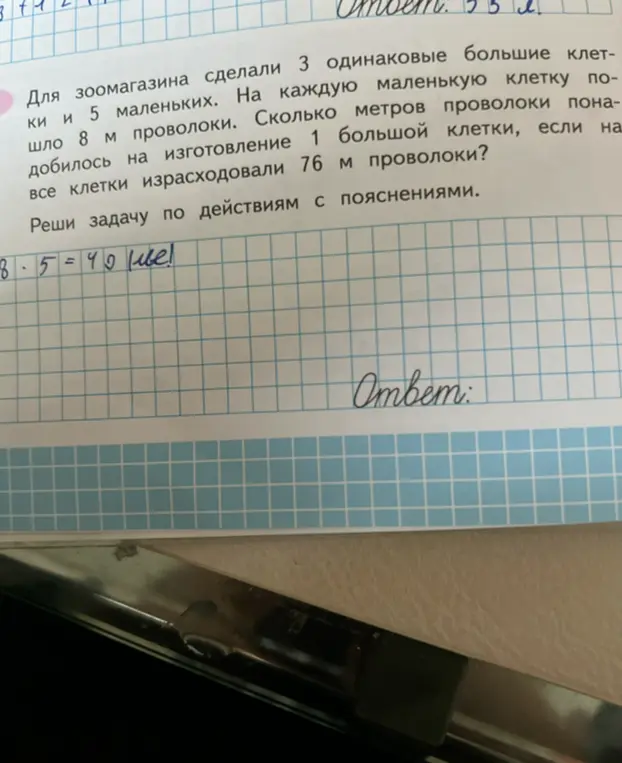 Ответ: 35 л.
Для зоомагазина сделали 3 одинаковые большие клет-
ки и 5 маленьких. На каждую маленькую клетку по-
шло 8 м проволоки. Сколько метров проволоки пона-
добилось на изготовление 1 большой клетки, если на
все клетки израсходовали 76 м проволоки?
Реши задачу по действиям с пояснениями.
8 · 5 = 40
Ответ: